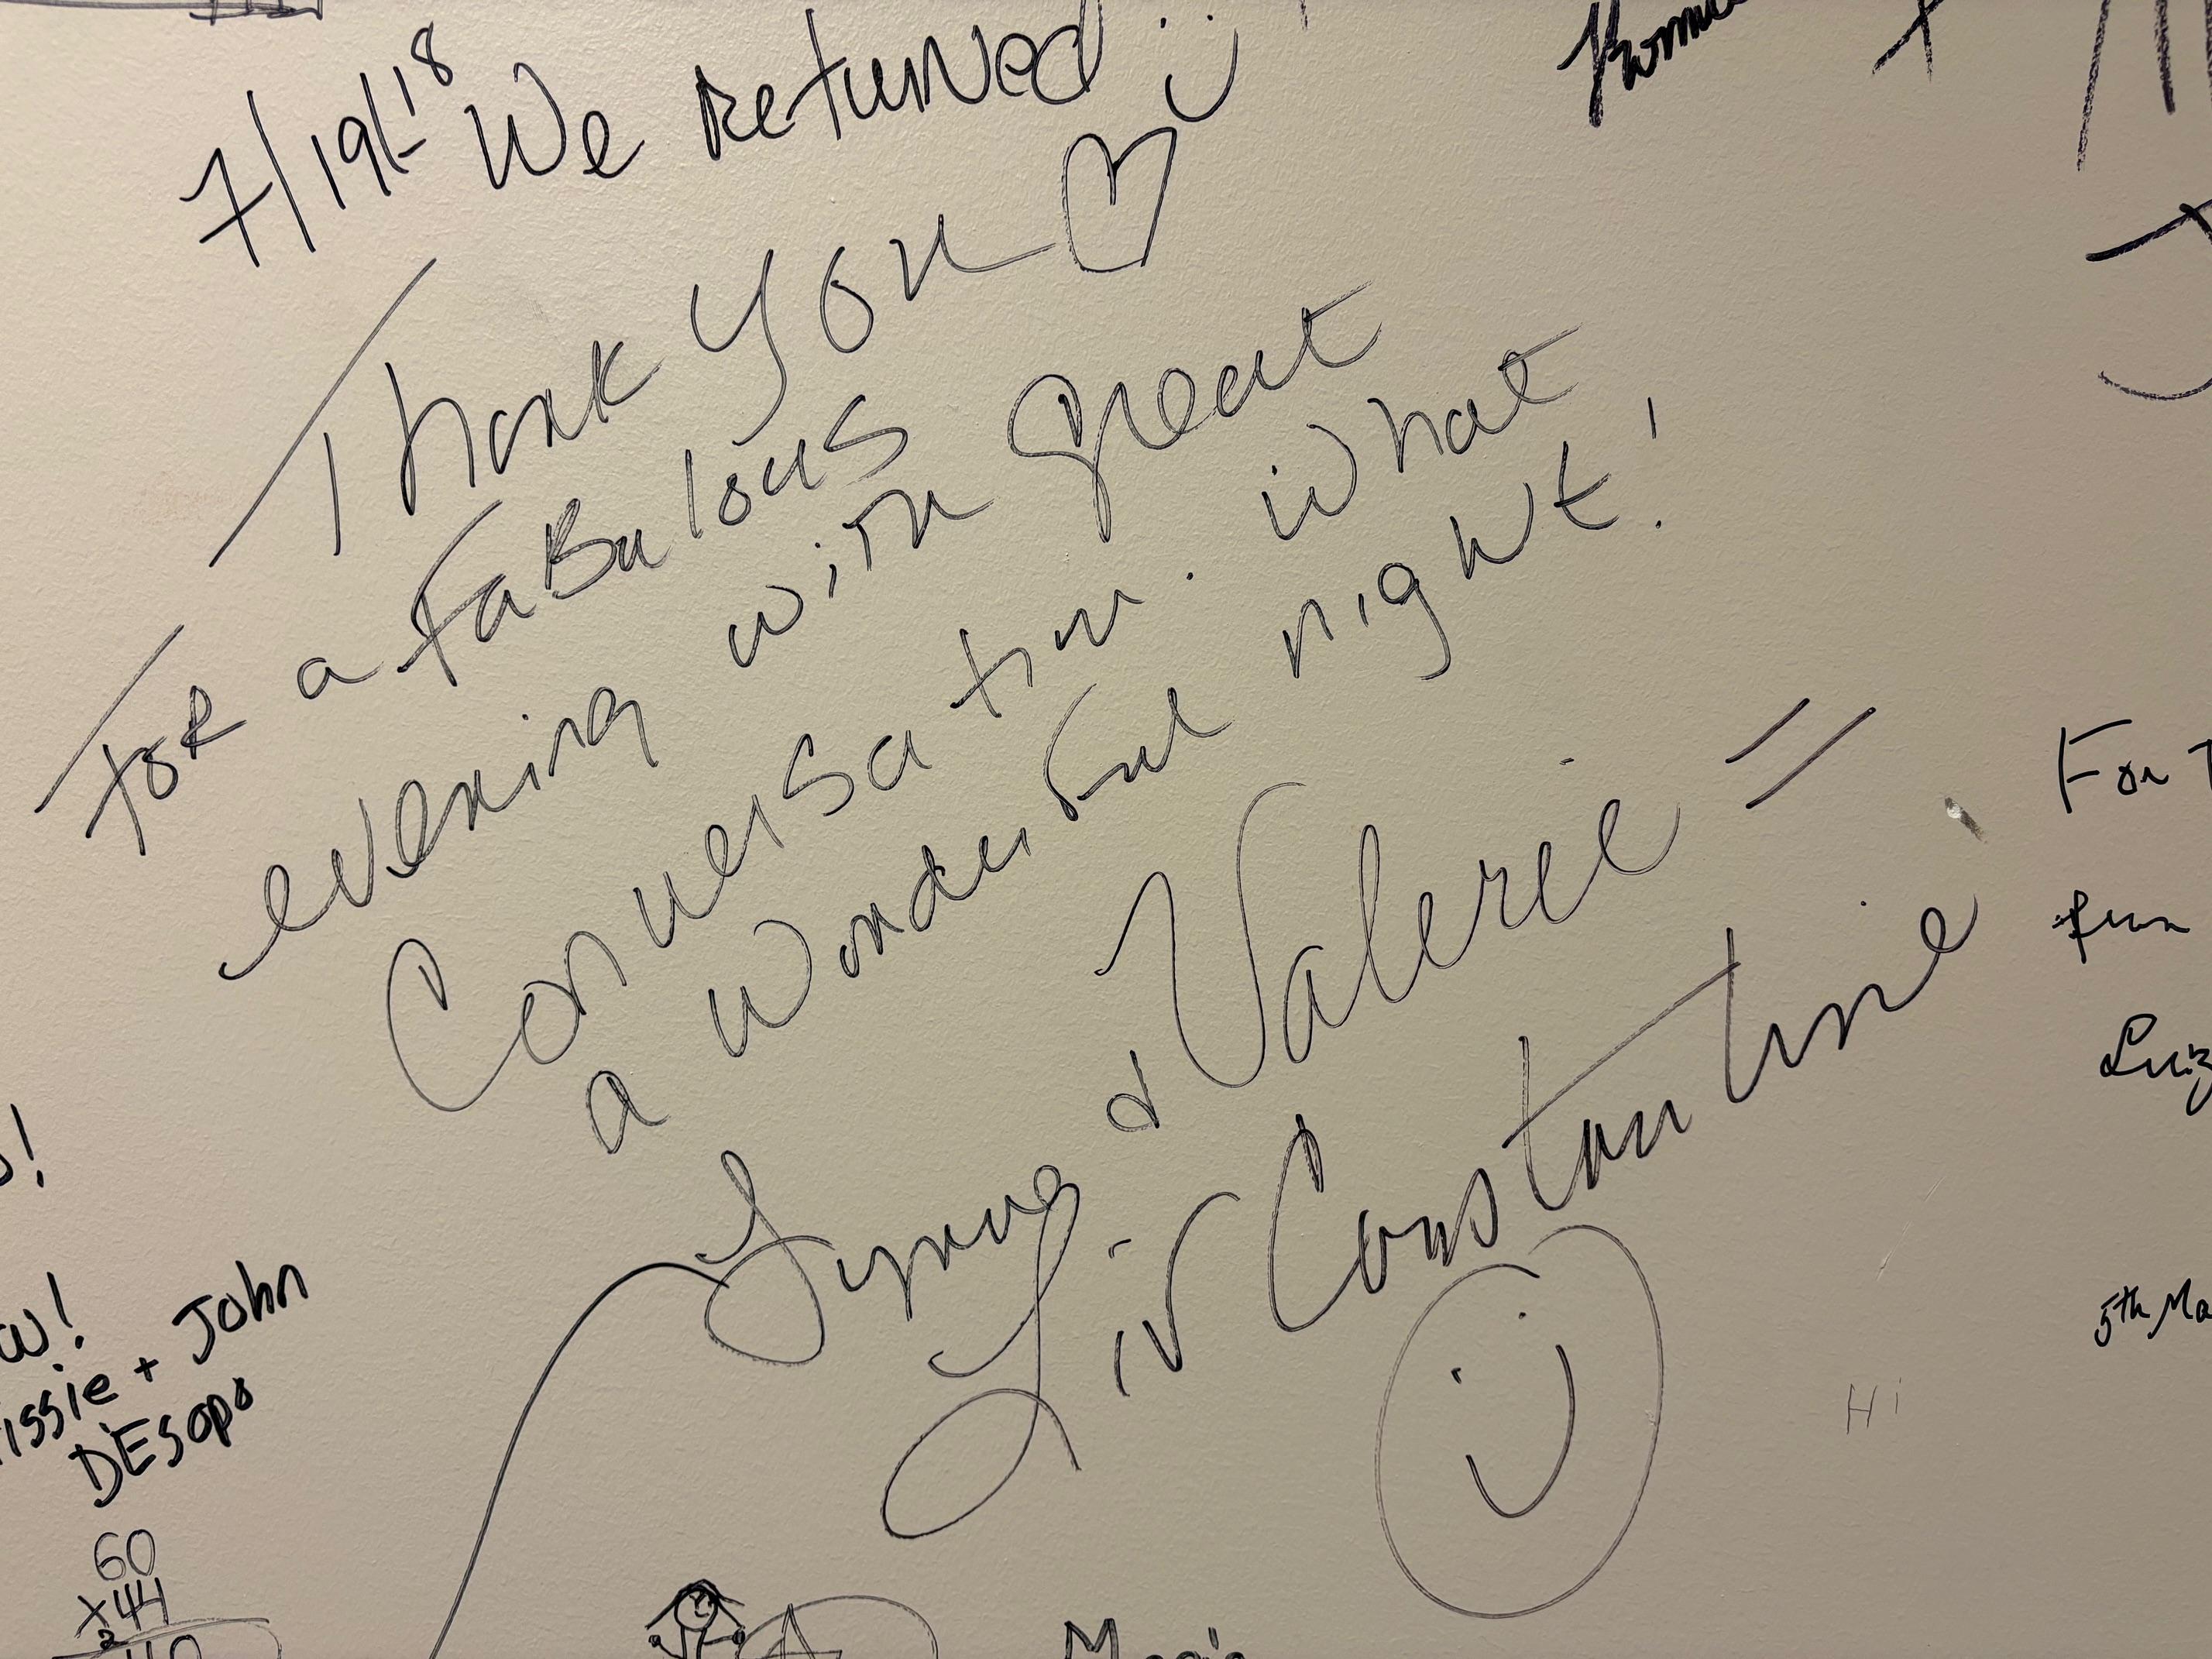 7/19/18 We Returned
Thank You
For a FaBulous
evening with great
Conversation. What
a Wonderful night!
Lynne & Valerie =
Liv Constantine
For
fun
Luiz
5th Ma
Hi
w!
issie + John
DESopo
60
x44
2